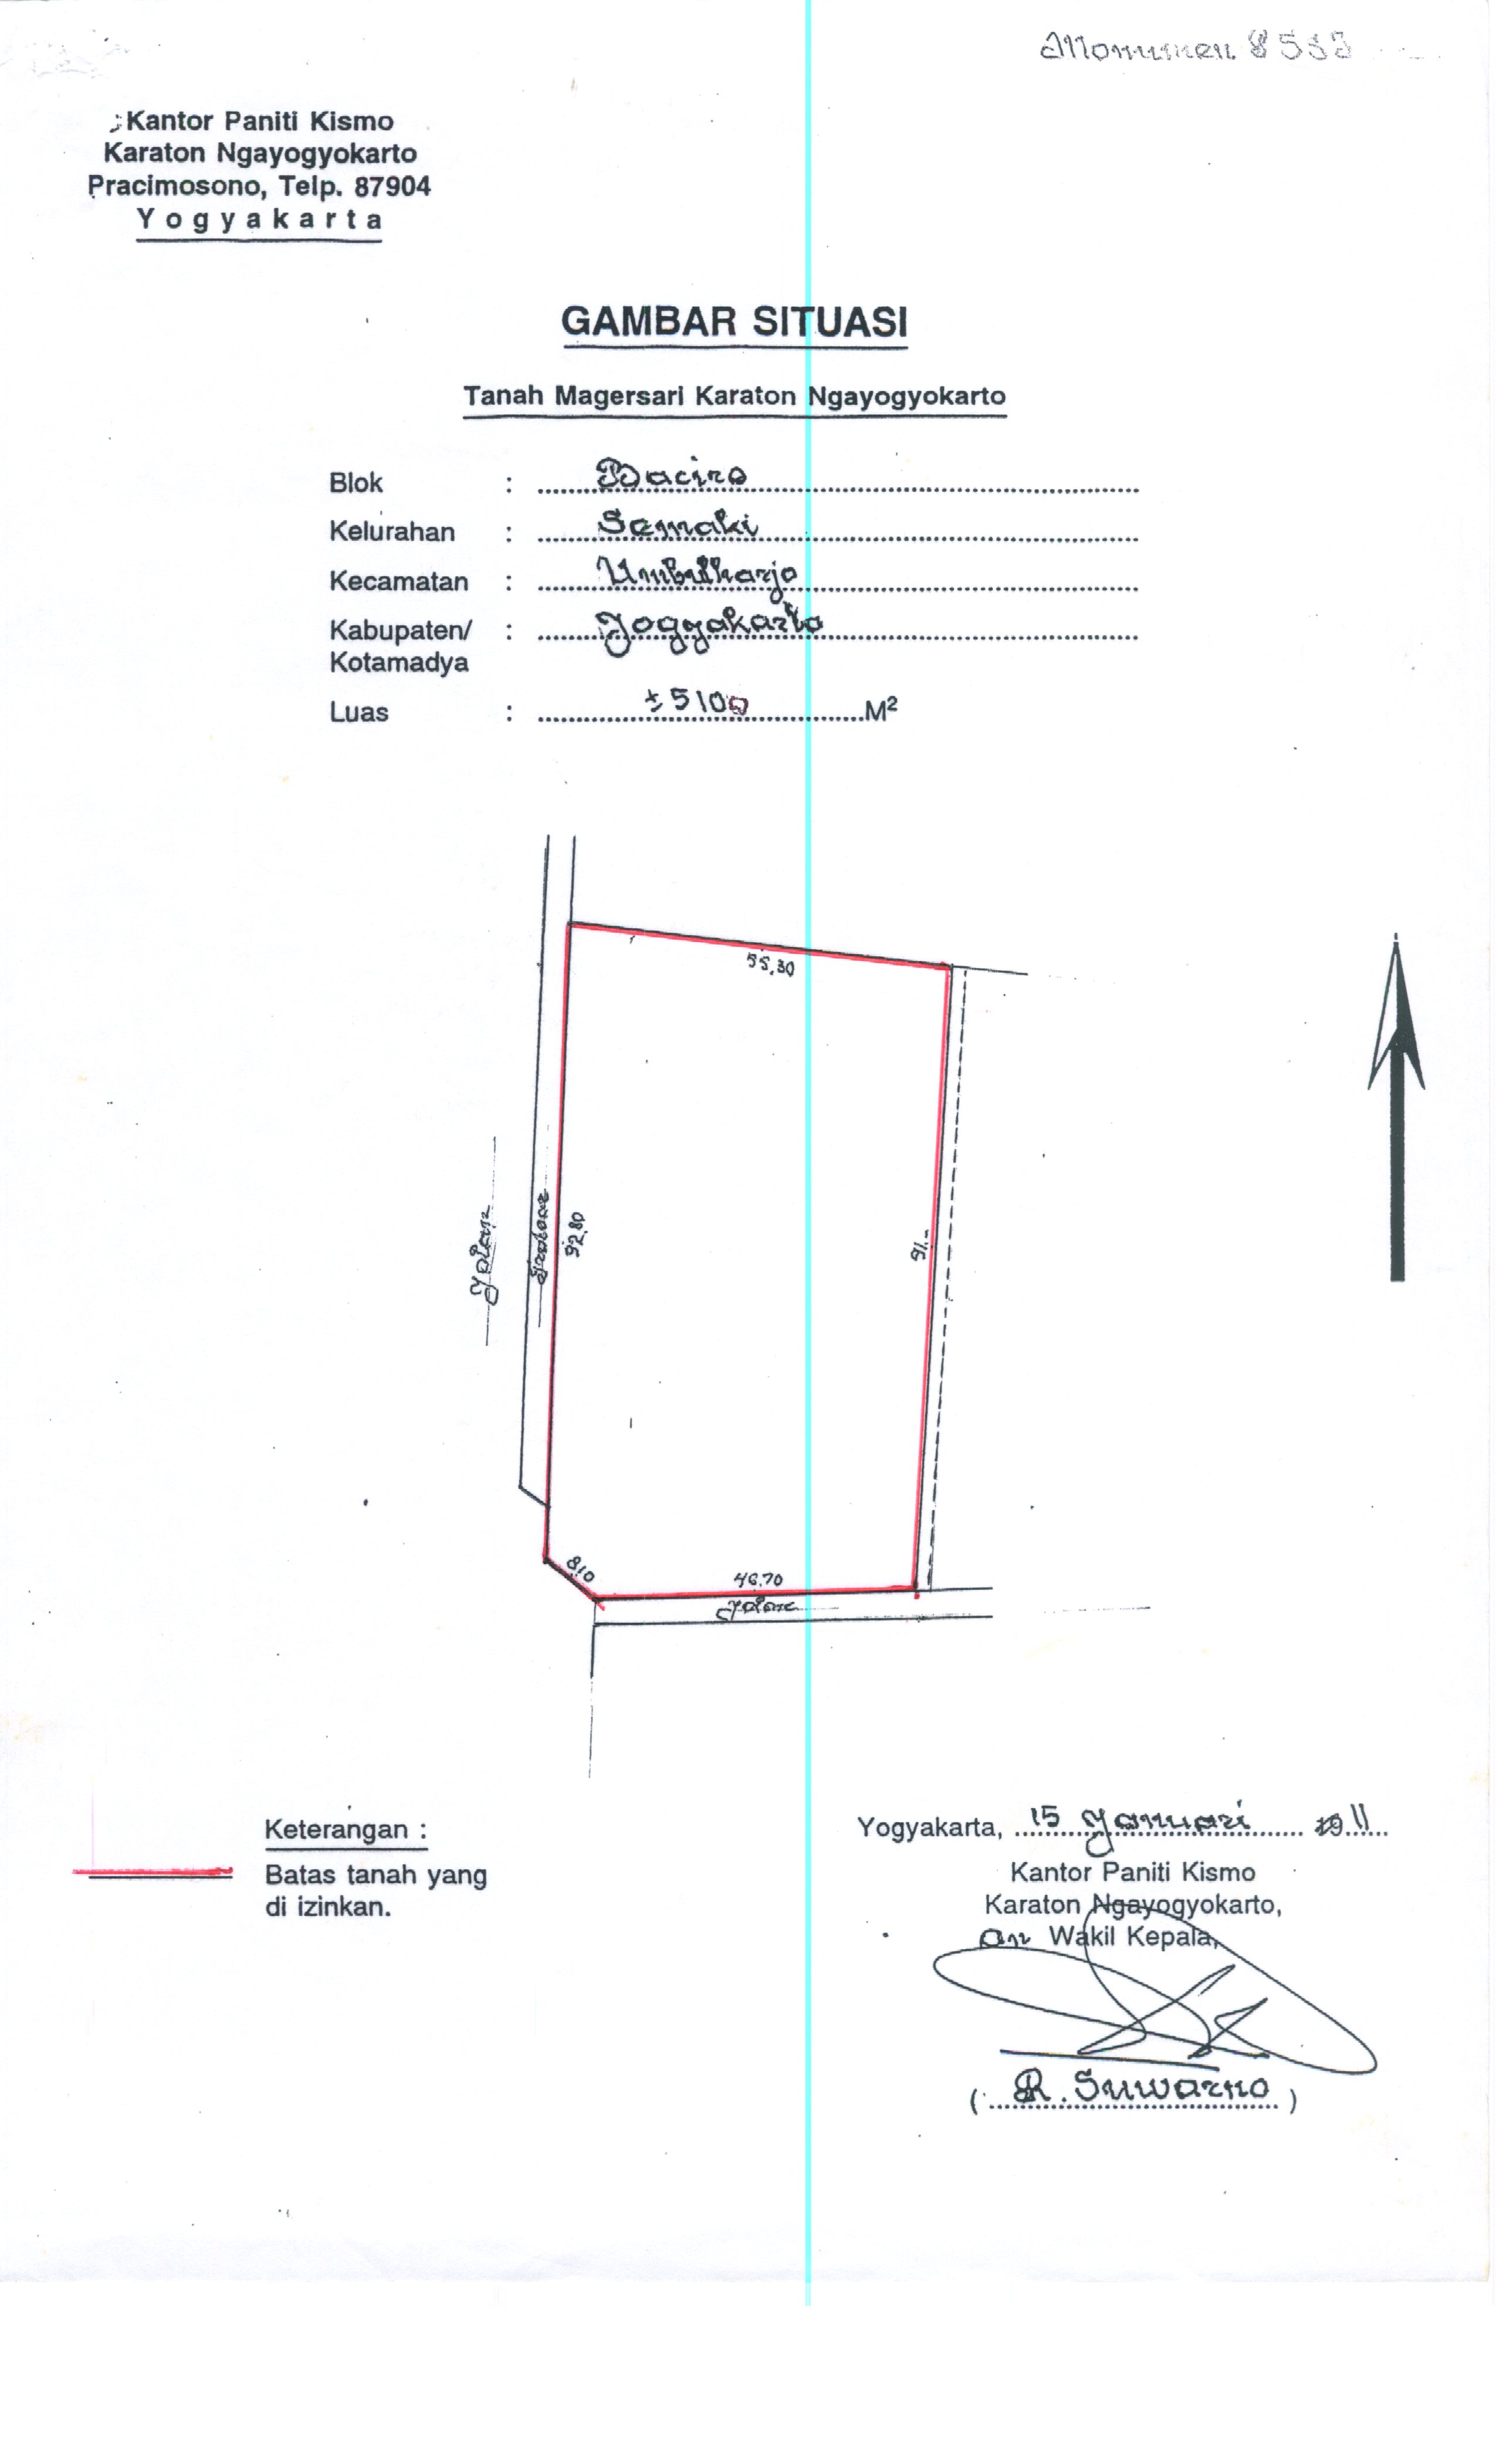 Kantor Paniti Kismo
Karaton Ngayogyokarto
Pracimosono, Telp. 87904
Yogyakarta
GAMBAR SITUASI
Tanah Magersari Karaton Ngayogyokarto
Blok : Baciro
Kelurahan : Semaki
Kecamatan : Umbulharjo
Kabupaten/ : Yogyakarta
Kotamadya
Luas : ± 5100 M²
55,30
Jalan
92,80
91,-
8,10
46,70
Jalan
Keterangan :
Batas tanah yang
di izinkan.
Yogyakarta, 15 Januari 11
Kantor Paniti Kismo
Karaton Ngayogyokarto,
an Wakil Kepala,
( R. Suwarno )